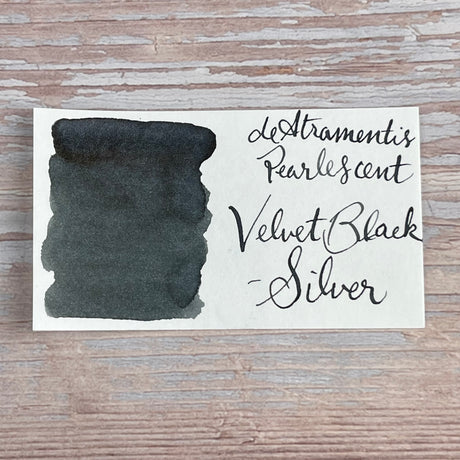 deAtramentis
Pearlescent
Velvet Black
- Silver